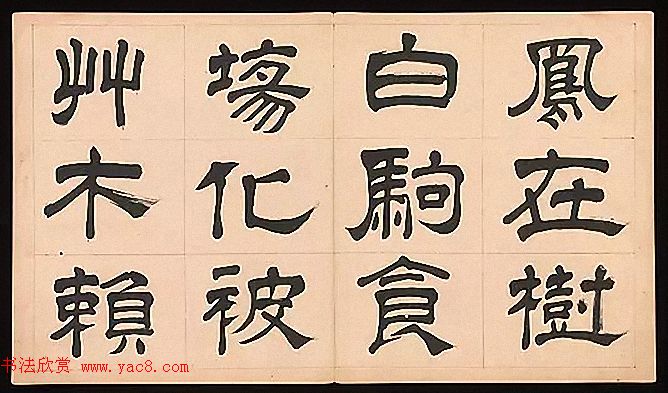 鳳在樹
白駒食
場化被
艸木賴
书法欣赏 www.yac8.com